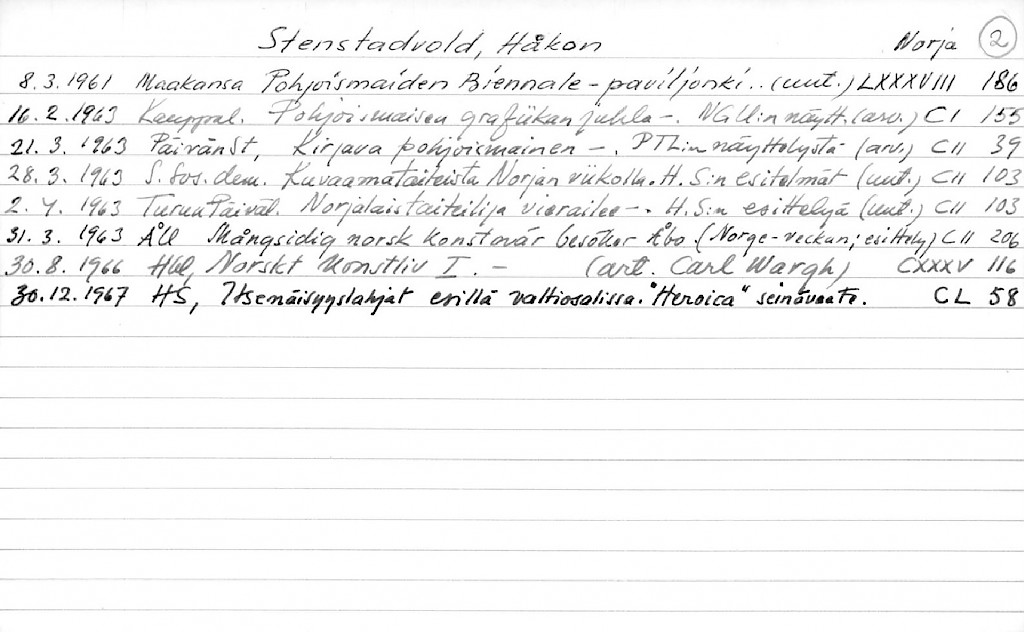 Stenstadvold, Håkon Norja 2
8.3.1961 Maakansa Pohjoismaiden Biennale-paviljonki.. (uut.) LXXXVIII 186
16.2.1963 Kauppal. Pohjoismaisen grafiikan juhla -. NGU:n näytt. (arv.) CI 155
21.3.1963 PäivänSt, Kirjava pohjoismainen -. PTL:n näyttelystä (arv.) CII 39
28.3.1963 S.Sos.dem. Kuvaamataiteista Norjan viikolla. H.S:n esitelmät (uut.) CII 103
2.4.1963 TurunPäiväl. Norjalaistaiteilija vierailee -. H.S:n esittelyä (uut.) CII 103
31.3.1963 ÅU Mångsidig norsk konstnär besöker Åbo. (Norge-veckan; esittely) CII 206
30.8.1966 Hbl, Norskt konstliv I. - (art. Carl Wargh) CXXXV 116
30.12.1967 HS, Itsenäisyyslahjat esillä valtiosalissa. "Heroica" seinävaate. CL 58